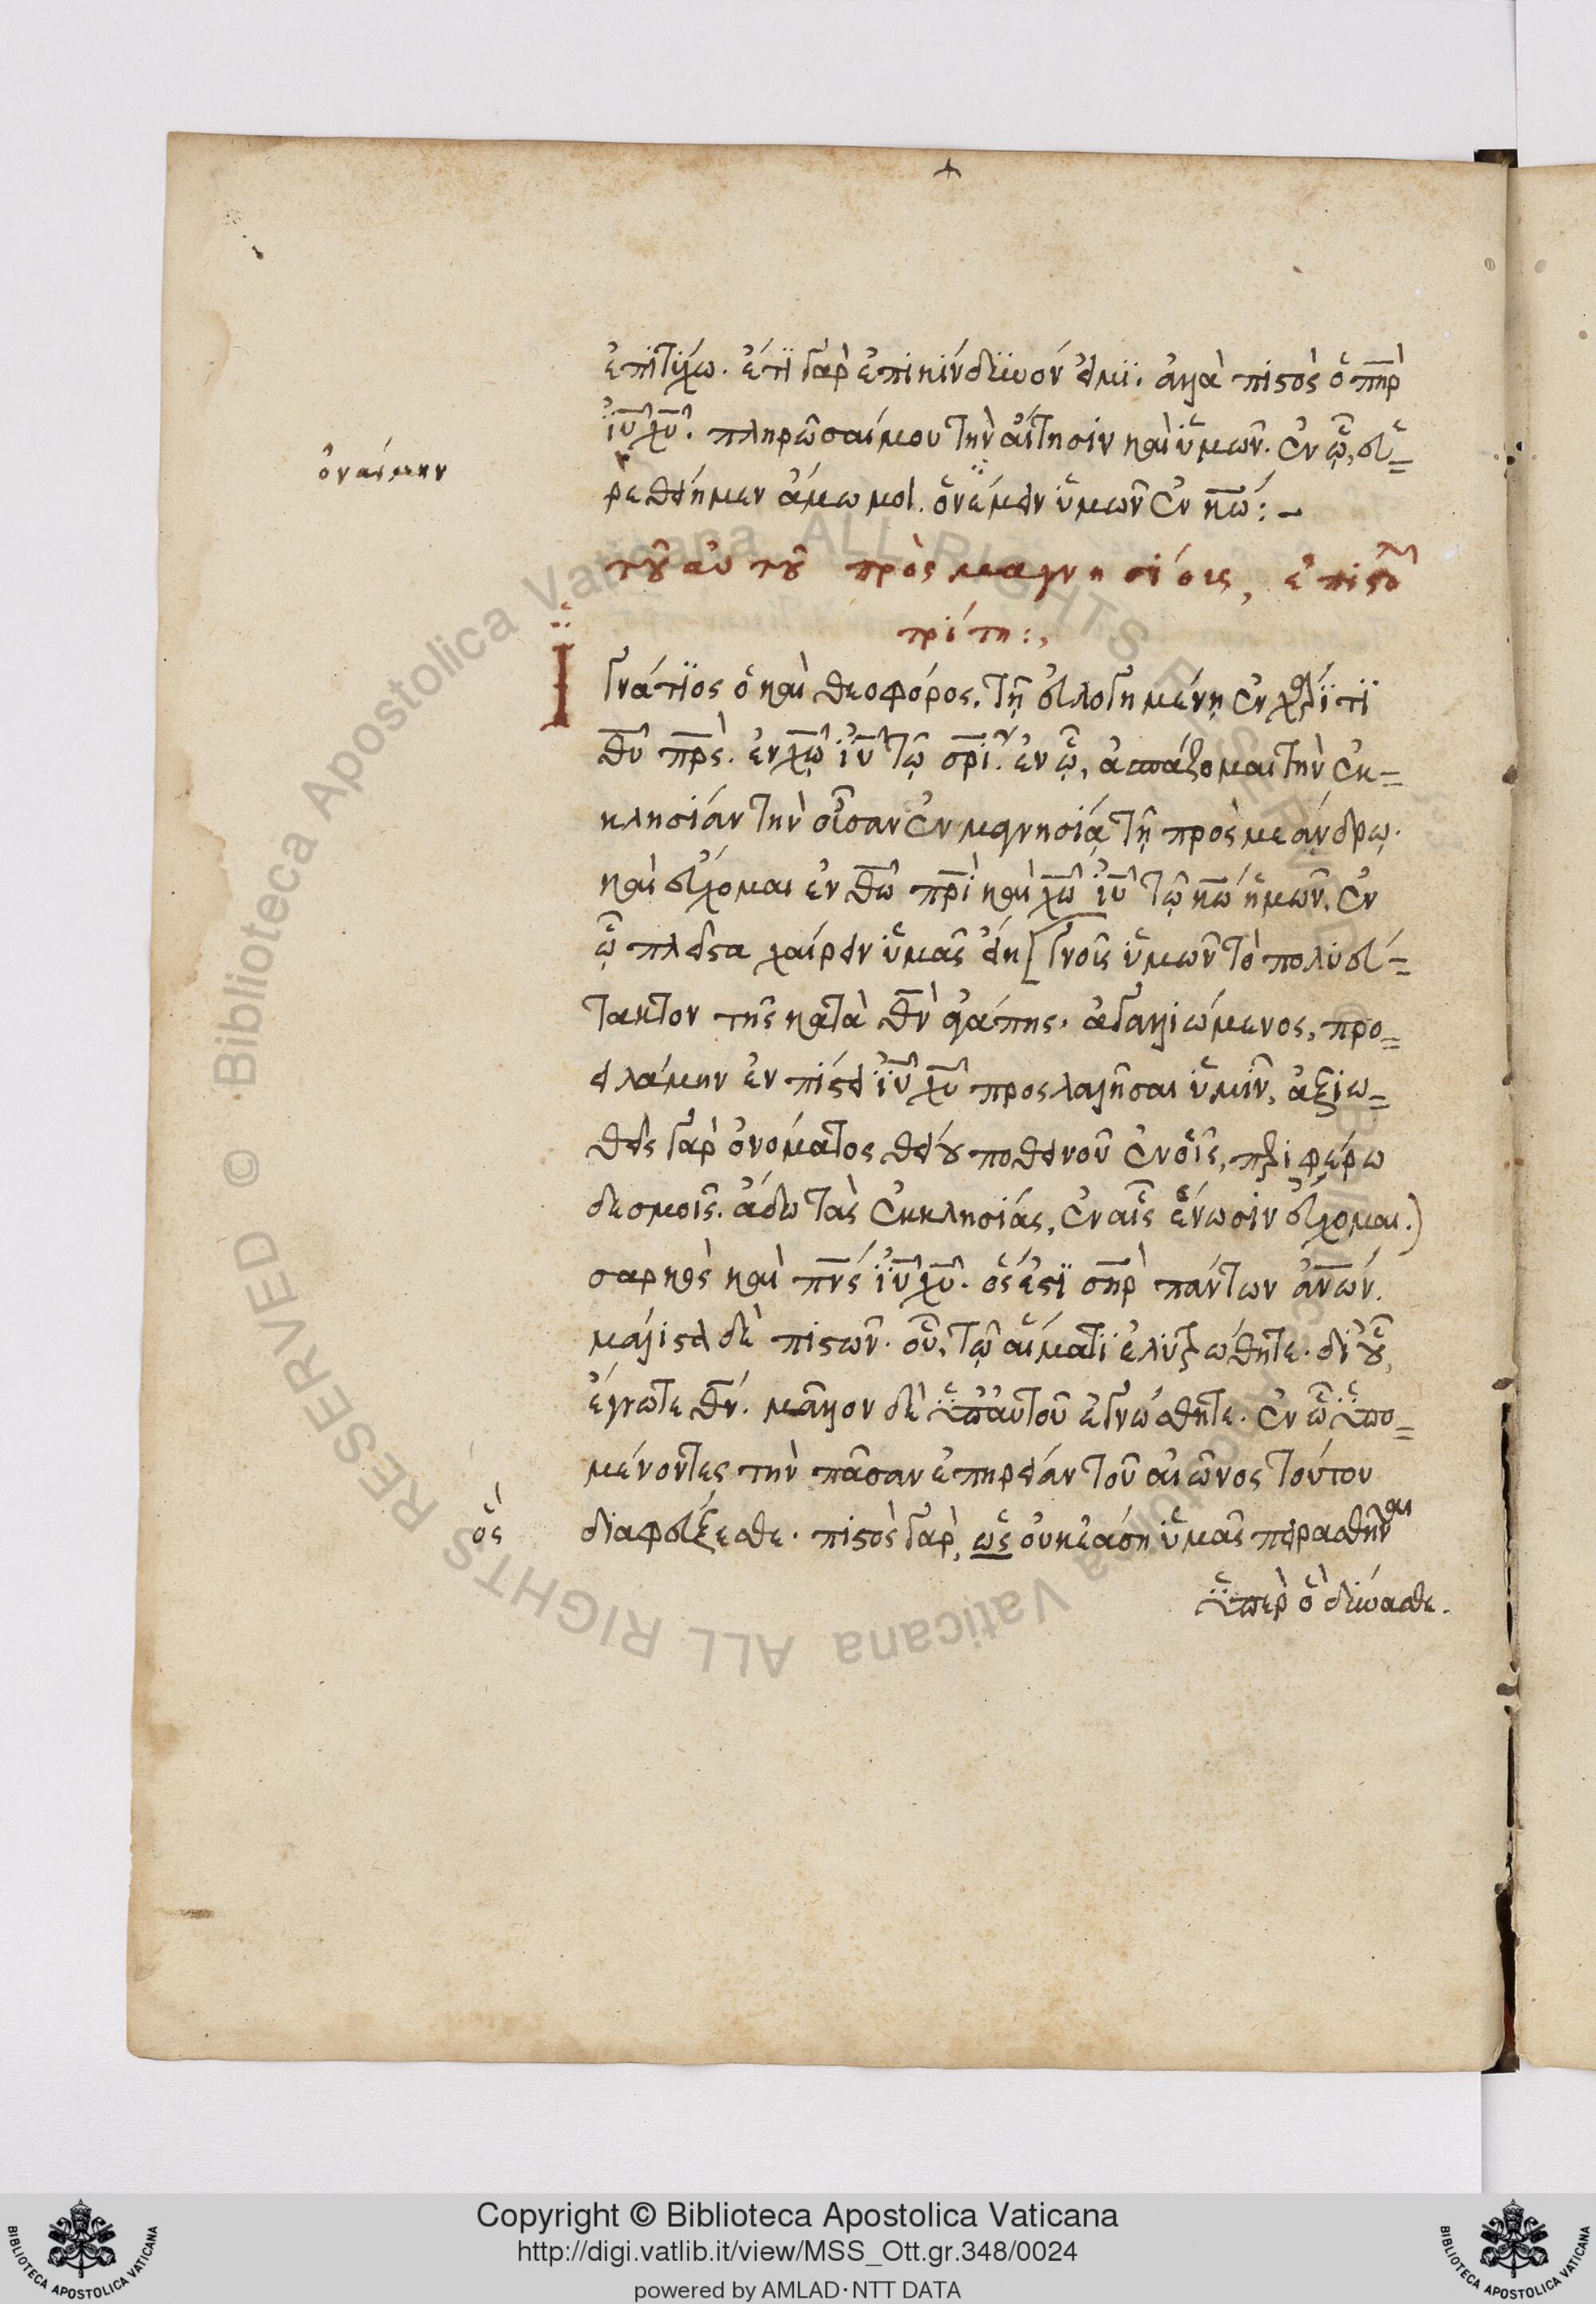 ἐπιτύχω. ἔτι γὰρ ἐπικίνδυνόν εἰμι. ἀλλὰ πιστὸς ὁ πηρ
ὀναίμην
ιυ χυ. πληρῶσαί μου τὴν αἴτησιν καὶ ὑμῶν. ἐν ᾧ, εὑ=
ρεθείημεν ἄμωμοι. ὀναίμην ὑμῶν ἐν κω:-
τοῦ αὐτοῦ πρὸς μαγνησίους, ἐπιστο
τρίτη:,
Ἰγνάτιος ὁ καὶ θεοφόρος. τῇ εὐλογημένῃ ἐν χάριτι
θυ πρς. ἐν χω ιυ τῷ σρι. ἐν ᾧ, ἀσπάζομαι τὴν ἐκ=
κλησίαν τὴν οὖσαν ἐν μαγνησίᾳ τῇ πρὸς μεάνδρῳ.
καὶ εὔχομαι ἐν θω πρι καὶ χω ιυ τῷ κω ἡμῶν. ἐν
ᾧ πλεῖστα χαίρειν ὑμᾶς εἴη [γνοὺς ὑμῶν τὸ πολυεύ=
τακτον τῆς κατὰ θν ἀγάπης. ἀγαλλιώμενος, προ=
ειλάμην ἐν πίστει ιυ χυ προσλαλῆσαι ὑμῖν, ἀξιω=
θεὶς γὰρ ὀνόματος θείου ποθεινοῦ ἐν οἷς, περιφέρω
δεσμοῖς. ἄδω τὰς ἐκκλησίας, ἐν αἷς ἕνωσιν εὔχομαι.)
σαρκὸς καὶ πνς ιυ χυ. ὅς ἐστι σηρ πάντων ανων.
μάλιστα δὲ πιστῶν. οὗ, τῷ αἵματι ἐλυτρώθητε. δι' οὗ,
ἔγνωτε θν. μᾶλλον δὲ ὑπ' αὐτοῦ ἐγνώσθητε. ἐν ᾧ ὑπο=
μένοντες τὴν πᾶσαν ἐπήρειαν τοῦ αἰῶνος τούτου
ὃς διαφεύξεσθε. πιστὸς γὰρ, ὡς οὐκ ἐάσῃ ὑμᾶς πειρασθῆναι
ὑπὲρ ὃ δύνασθε.
Copyright © Biblioteca Apostolica Vaticana
http://digi.vatlib.it/view/MSS_Ott.gr.348/0024
powered by AMLAD·NTT DATA